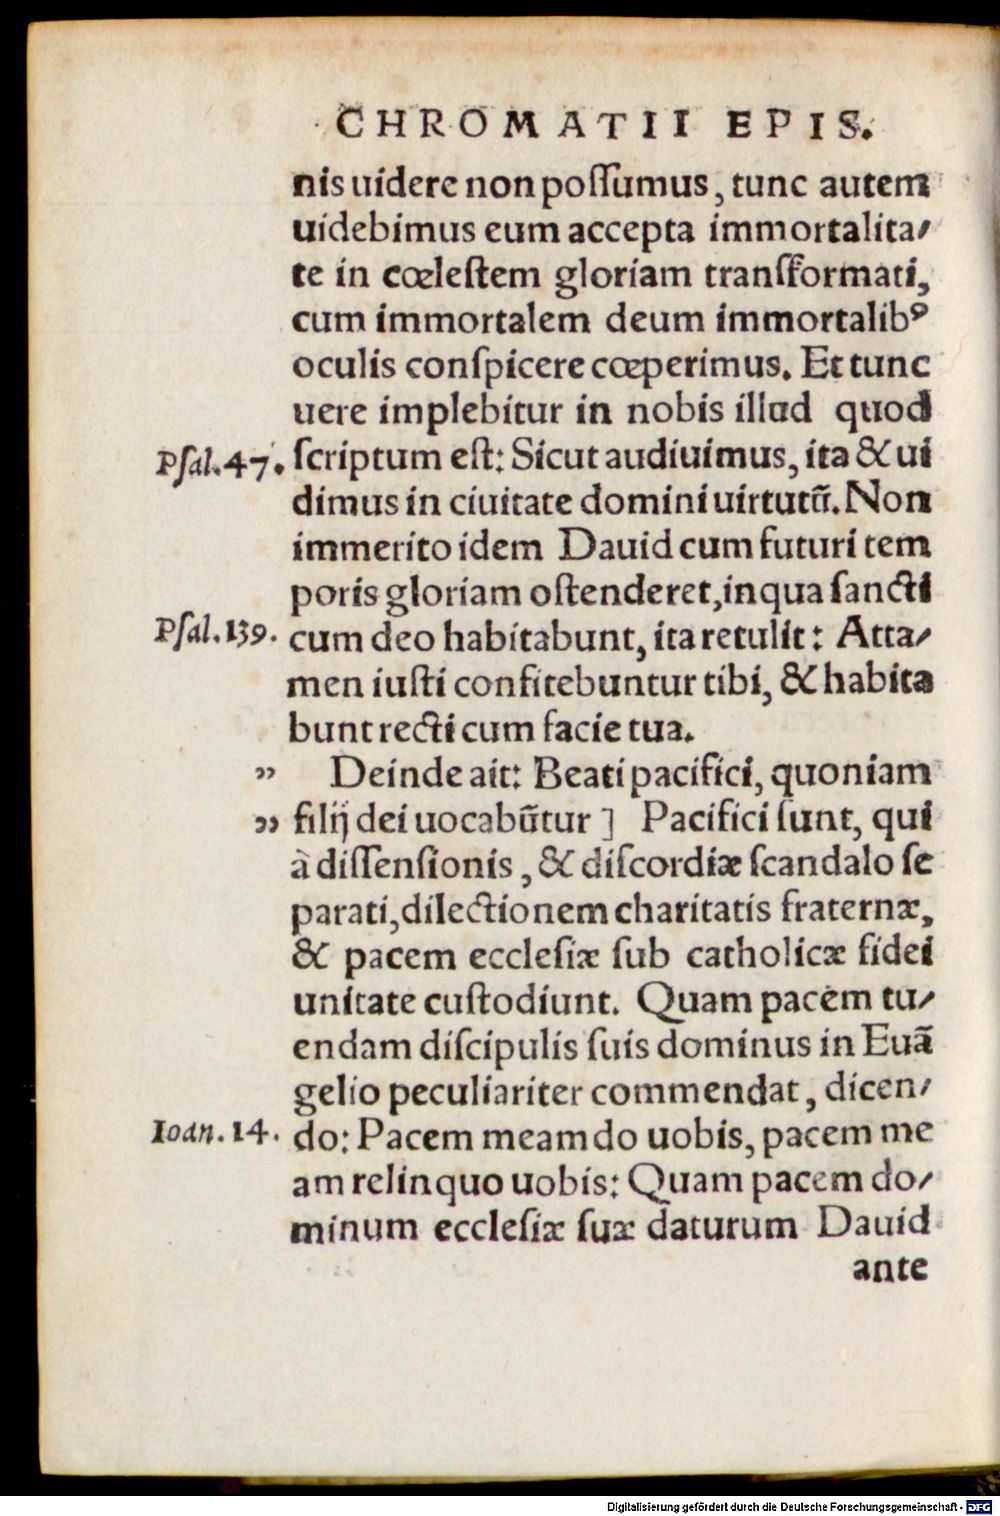 CHROMATII EPIS.
nis uidere non poſſumus, tunc autem
uidebimus eum accepta immortalita/
te in cœleſtem gloriam transformati,
cum immortalem deum immortalibꝰ
oculis conſpicere cœperimus. Et tunc
uere implebitur in nobis illud quod
Pſal.47. ſcriptum eſt: Sicut audiuimus, ita & ui
dimus in ciuitate domini uirtutū. Non
immerito idem Dauid cum futuri tem
poris gloriam oſtenderet, in qua ſancti
Pſal.139. cum deo habitabunt, ita retulit: Atta/
men iuſti confitebuntur tibi, & habita
bunt recti cum facie tua.
„ Deinde ait: Beati pacifici, quoniam
„ filij dei uocabūtur ] Pacifici ſunt, qui
à diſſenſionis, & diſcordiæ ſcandalo ſe
parati, dilectionem charitatis fraternæ,
& pacem eccleſiæ ſub catholicæ fidei
unitate cuſtodiunt. Quam pacem tu/
endam diſcipulis ſuis dominus in Euā
gelio peculiariter commendat, dicen/
Ioan.14. do: Pacem meam do uobis, pacem me
am relinquo uobis: Quam pacem do/
minum eccleſiæ ſuæ daturum Dauid
ante
Digitalisierung gefördert durch die Deutsche Forschungsgemeinschaft - DFG